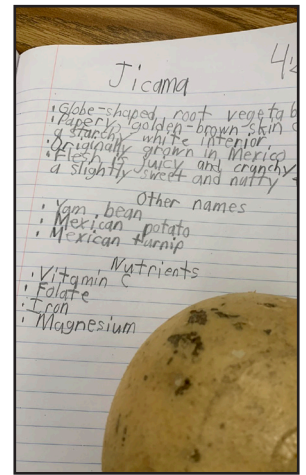 4
Jicama
• Globe-shaped root vegetab
• Papery golden-brown skin
a starchy white interior
• Originally grown in Mexico
• Flesh is juicy and crunchy
a slightly sweet and nutty
Other names
• Yam bean
• Mexican potato
• Mexican turnip
Nutrients
• Vitamin C
• Folate
• Iron
• Magnesium